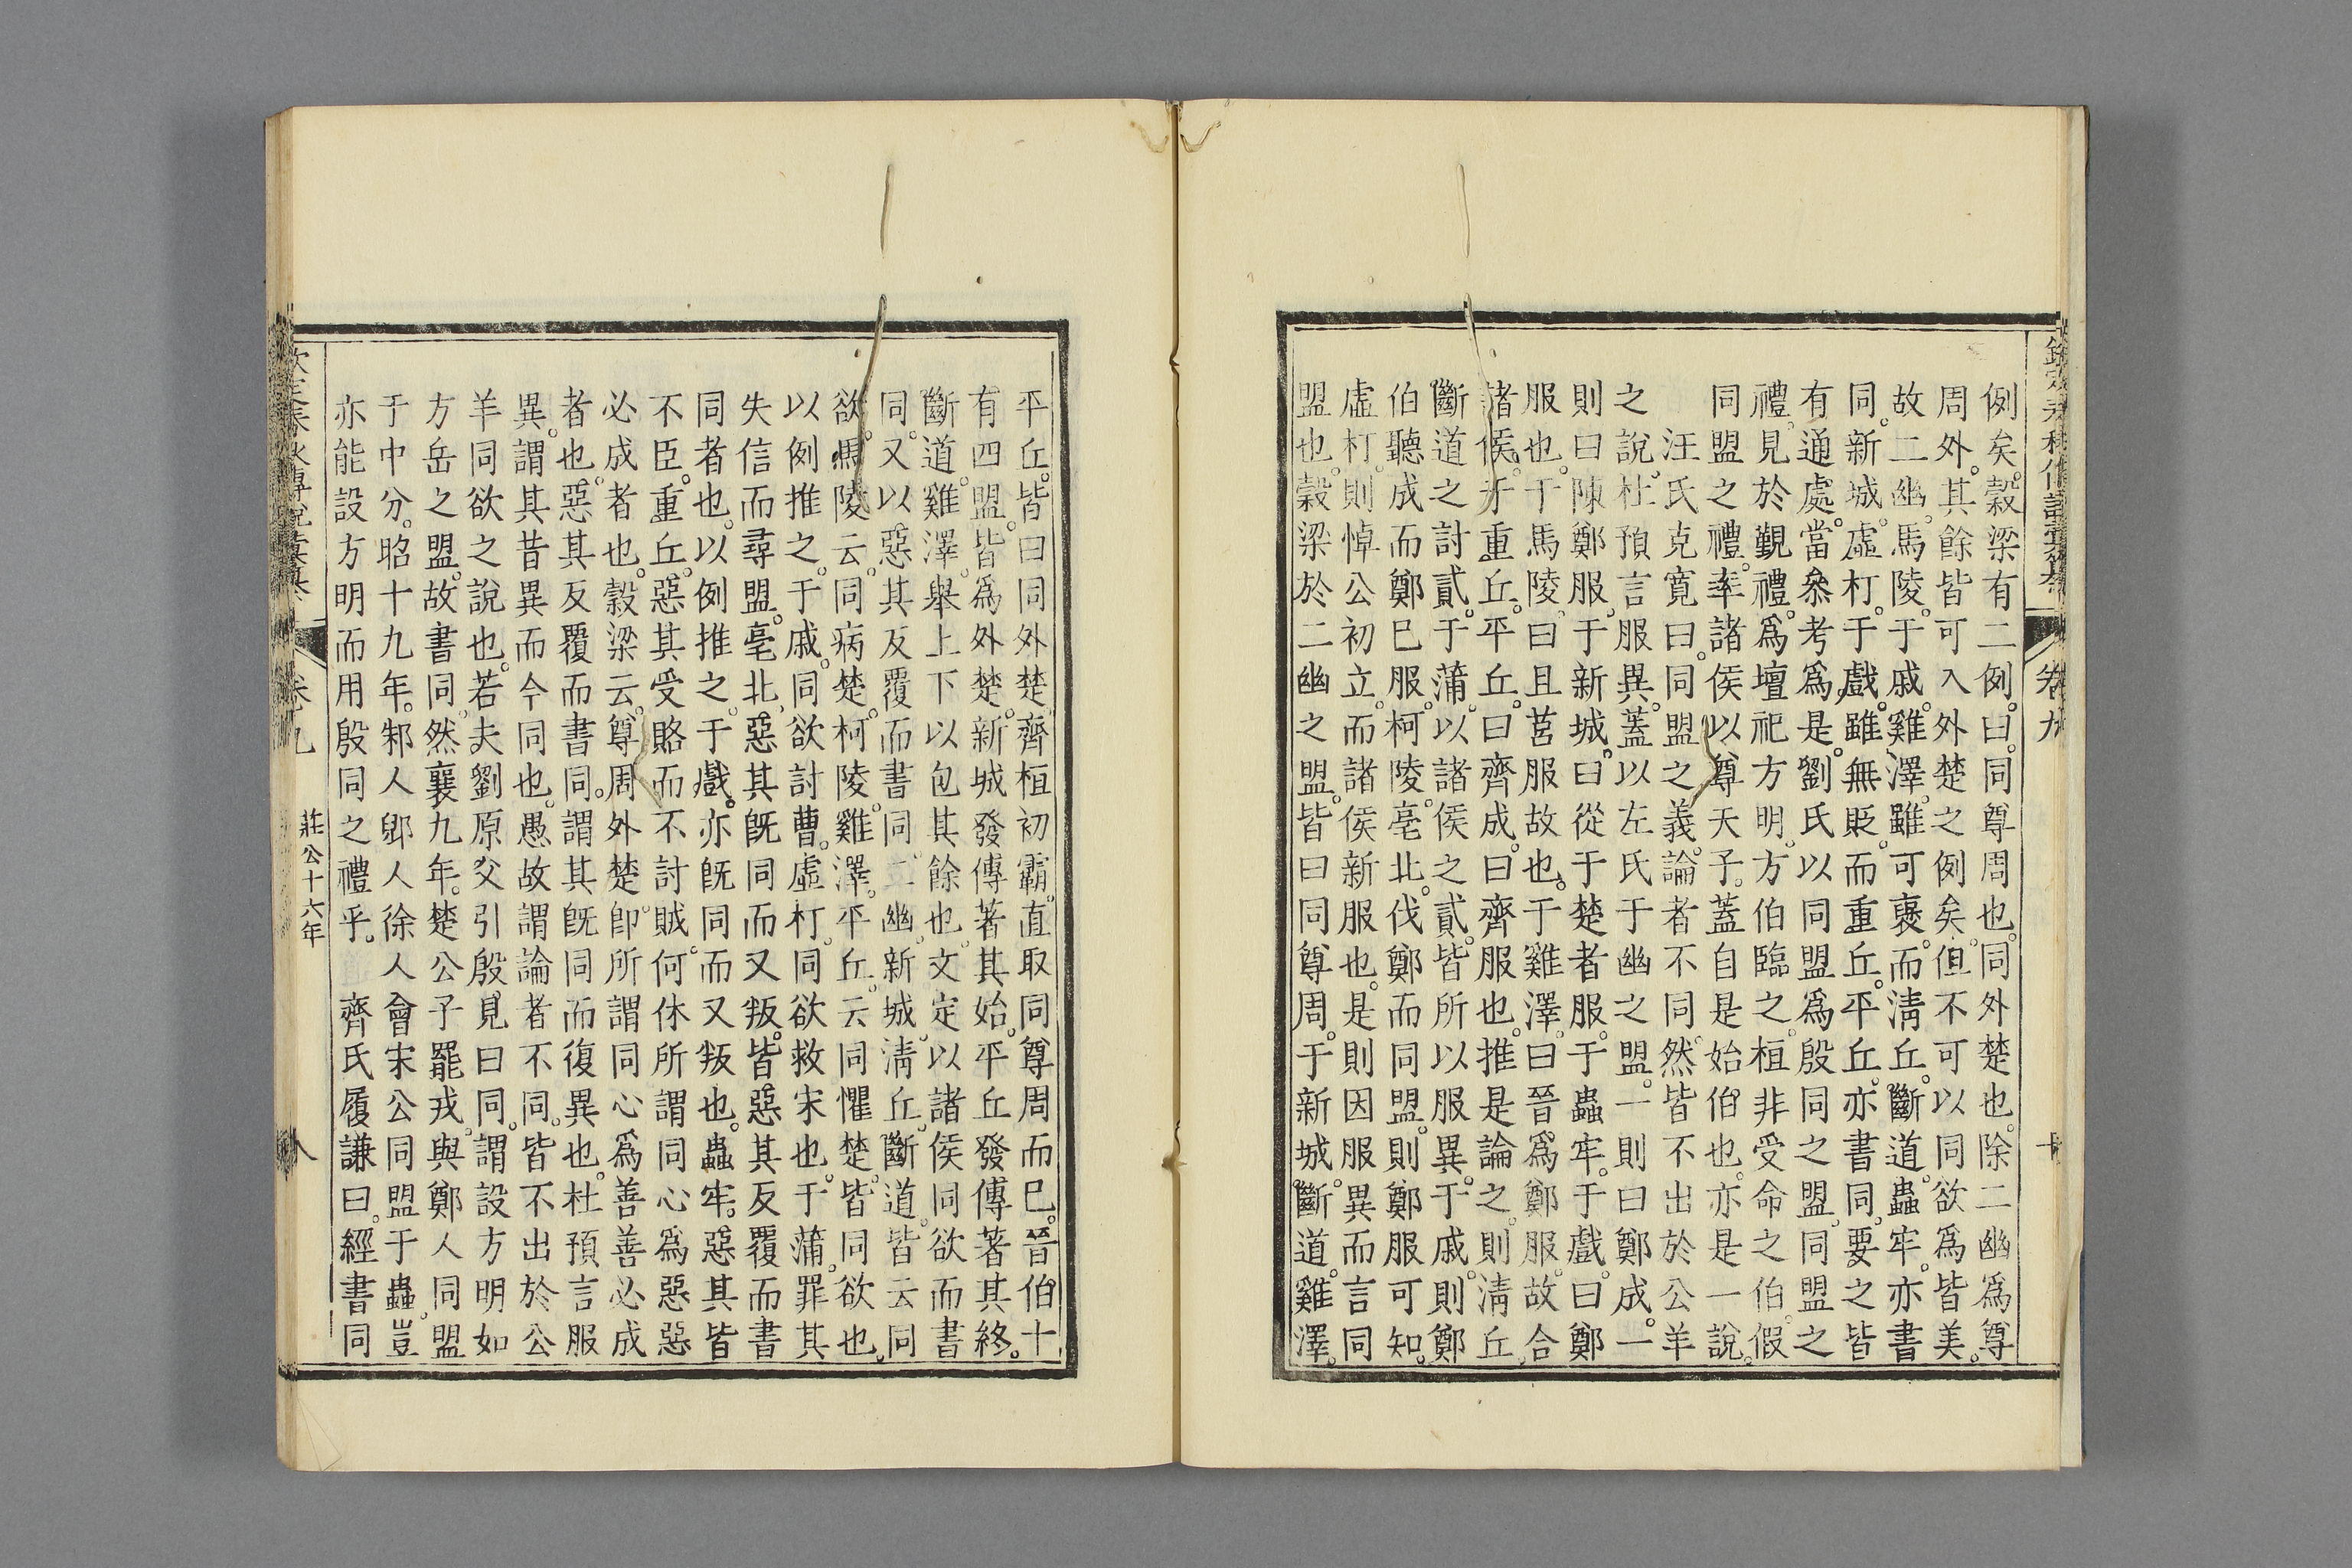 例矣。穀梁有二例。曰。同尊周也。同外楚也。除二幽爲尊
周外。其餘皆可入外楚之例矣。但不可以同欲爲皆美。
故二幽。馬陵。于戚。雞澤。雖可褒。而淸丘。斷道。蟲牢。亦書
同。新城。虛朾。于戲。雖無貶。而重丘。平丘。亦書同。要之皆
有通處。當叅考爲是。劉氏以同盟爲殷同之盟。同盟之
禮。見於覲禮。爲壇祀方明。方伯臨之。桓非受命之伯。假
同盟之禮。率諸侯以尊天子。蓋自是始伯也。亦是一說。
汪氏克寬曰。同盟之義。論者不同。然皆不出於公羊
之說。杜預言服異。蓋以左氏于幽之盟。一則曰鄭成。一
則曰陳鄭服。于新城。曰從于楚者服。于蟲牢。于戲。曰鄭
服也。于馬陵。曰且莒服故也。于雞澤。曰晉爲鄭服。故合
諸侯。于重丘。平丘。曰齊成。曰齊服也。推是論之。則淸丘。
斷道之討貳。于蒲。以諸侯之貳。皆所以服異。于戚。則鄭
伯聽成而鄭巳服。柯陵。亳北。伐鄭而同盟。則鄭服可知。
虛朾。則悼公初立。而諸侯新服也。是則因服異而言同
盟也。穀梁於二幽之盟。皆曰同尊周。于新城。斷道。雞澤。
卷九
平丘。皆曰同外楚。齊桓初霸。直取同尊周而巳。晉伯十
有四盟。皆爲外楚。新城發傳。著其始。平丘發傳。著其終。
斷道。雞澤。舉上下以包其餘也。文定以諸侯同欲而書
同。又以惡其反覆而書同。二幽。新城。淸丘。斷道。皆云同
欲。馬陵云。同病楚。柯陵。雞澤。平丘。云同懼楚。皆同欲也。
以例推之。于戚。同欲討曹。虛朾。同欲救宋也。于蒲。罪其
失信而尋盟。亳北。惡其旣同而又叛。皆惡其反覆而書
同者也。以例推之。于戲。亦旣同而又叛也。蟲牢。惡其皆
不臣。重丘。惡其受賂而不討賊。何休所謂同心爲惡惡
必成者也。穀梁云。尊周外楚。卽所謂同心爲善善必成
者也。惡其反覆而書同。謂其旣同而復異也。杜預言服
異。謂其昔異而今同也。愚故謂論者不同。皆不出於公
羊同欲之說也。若夫劉原父引殷見曰同。謂設方明如
方岳之盟。故書同。然襄九年。楚公子罷戎。與鄭人同盟
于中分。昭十九年。邾人郳人徐人會宋公同盟于蟲。豈
亦能設方明而用殷同之禮乎。 齊氏履謙曰。經書同
莊公十六年
八